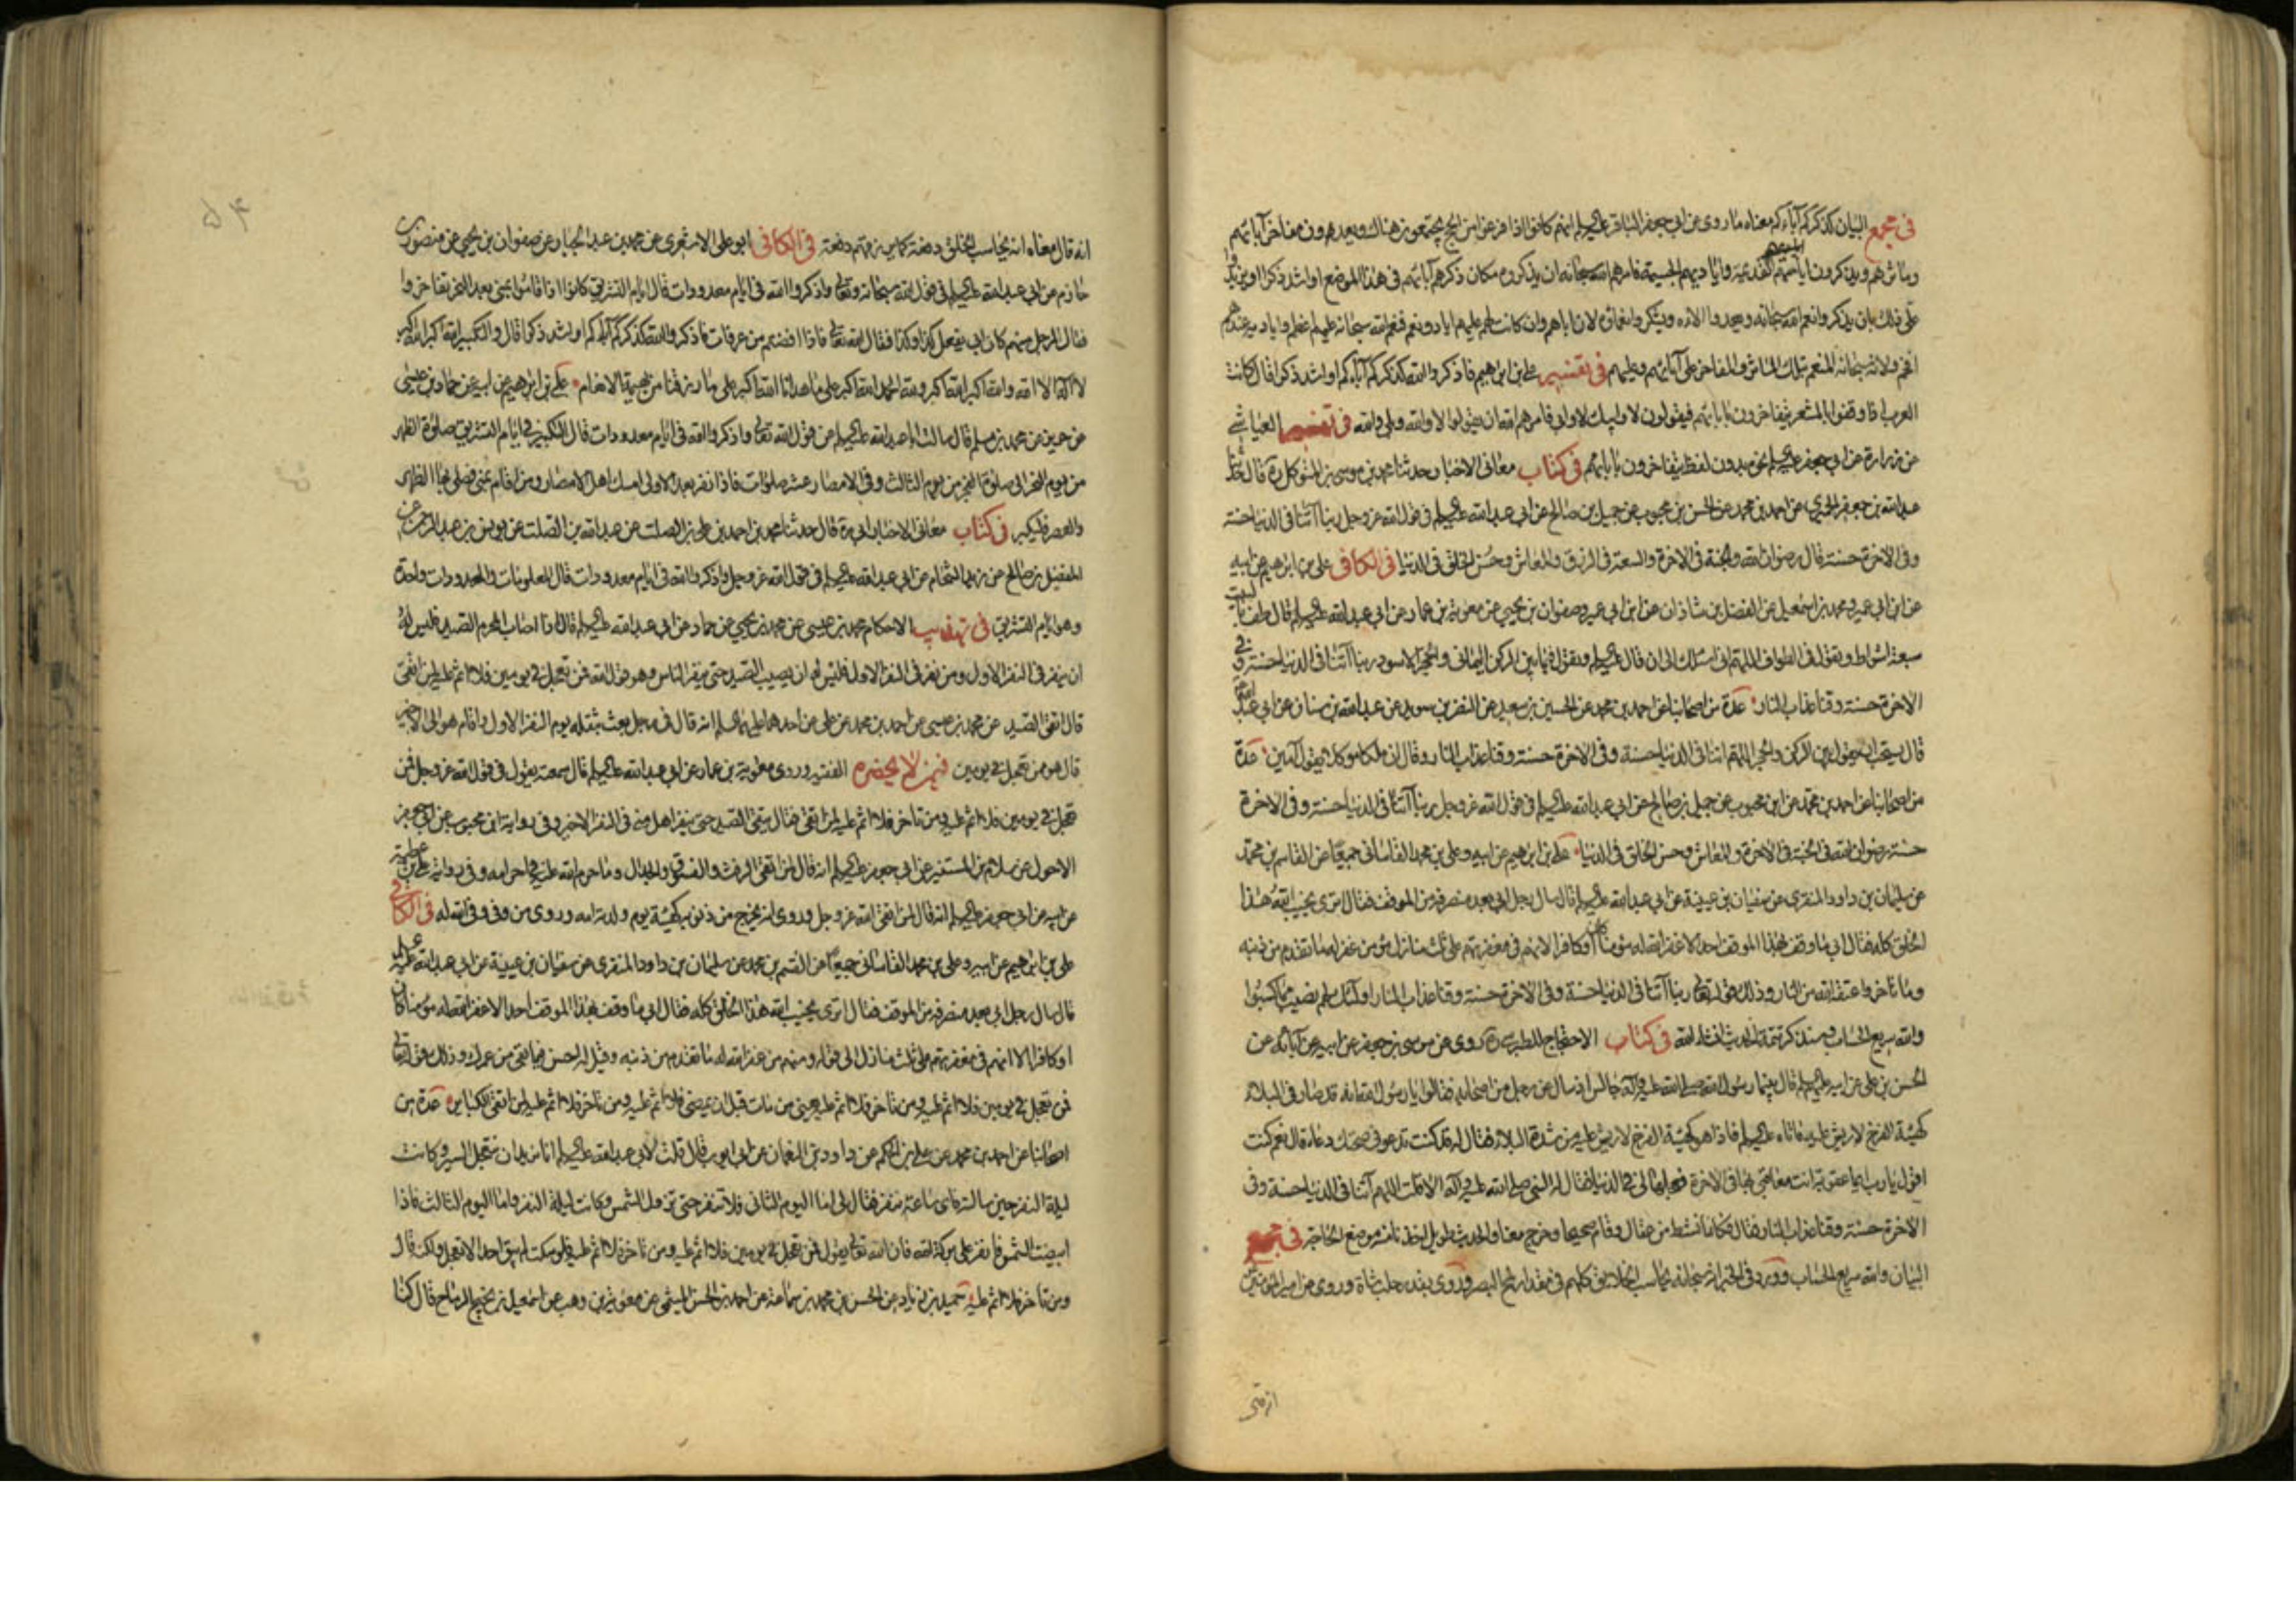 في مجمع البيان كذكركم آباءكم معناه ما روى عن ابى جعفر الباقر عليه السلم انهم كانوا اذا فرغوا من الحج يجتمعون هناك ويعدون مفاخر آبائهم
ومآثرهم ويذكرون ايامهم القديمة واياديهم الجسيمة فامرهم الله سبحانه ان يذكروه مكان ذكرهم آبائهم في هذا الموضع او اشد ذكرا او يزيدوا
على ذلك بان يذكروا نعم الله سبحانه ويعدوا الاءه ويشكروا نعمائه لان اباءهم وان كانت لهم عليهم اياد ونعم فنعم الله سبحانه عليهم اعظم واياديه عندهم
افخم ولانه سبحانه المنعم بتلك المآثر والمفاخر على آبائهم وعليهم في تفسير على بن ابرهيم فاذكروا الله كذكركم آباءكم او اشد ذكرا قال كانت
العرب اذا وقفوا بالمشعر يتفاخرون بابائهم فيقولون لا وابيك لا وابى فامرهم الله ان يقولوا لا والله وبلى والله في تفسير العياشى
عن زرارة عن ابى جعفر عليه السلم نحوه بدون لفظ يتفاخرون بابائهم في كتاب معانى الاخبار حدثنا محمد بن موسى بن المتوكل ره قال حدثنا
عبد الله بن جعفر الحميرى عن احمد بن محمد عن الحسن بن محبوب عن جميل بن صالح عن ابى عبد الله عليه السلم في قول الله عز وجل ربنا آتنا في الدنيا حسنة
وفى الاخرة حسنة قال رضوان الله والجنة في الاخرة والسعة في الرزق والمعاش وحسن الخلق في الدنيا في الكافى على بن ابرهيم عن ابيه
عن ابن ابى عمير ومحمد بن اسمعيل عن الفضل بن شاذان عن ابن ابى عمير وصفوان بن يحيى عن معوية بن عمار عن ابى عبد الله عليه السلم قال طف بالبيت
سبعة اشواط وتقول في الطواف اللهم انى اسئلك الى ان قال عليه السلم وتقول فيما بين الركن اليمانى والحجر الاسود ربنا آتنا في الدنيا حسنة وفى
الاخرة حسنة وقنا عذاب النار عدة من اصحابنا عن احمد بن محمد عن الحسين بن سعيد عن النضر بن سويد عن عبد الله بن سنان عن ابى عبد الله
قال يستحب ان يقول بين الركن والحجر اللهم اتنا في الدنيا حسنة وفى الاخرة حسنة وقنا عذاب النار وقال ان ملكا موكلا يقول آمين عدة
من اصحابنا عن احمد بن محمد عن ابن محبوب عن جميل بن صالح عن ابى عبد الله عليه السلم في قول الله عز وجل ربنا آتنا في الدنيا حسنة وفى الاخرة
حسنة رضوان الله في الجنة في الاخرة والمعاش وحسن الخلق في الدنيا على بن ابرهيم عن ابيه وعلى بن محمد القاسانى جميعا عن القاسم بن محمد
عن سليمان بن داود المنقرى عن سفيان بن عيينة عن ابى عبد الله عليه السلم قال سال رجل ابى بعد منصرفه من الموقف فقال اترى يخيب الله هذا
الخلق كله فقال ابى ما وقف بهذا الموقف احد الا غفر الله له مؤمنا كان او كافرا الا انهم في مغفرتهم على ثلث منازل مؤمن غفر له ما تقدم من ذنبه
وما تاخر واعتقه الله من النار وذلك قوله تعالى ربنا آتنا في الدنيا حسنة وفى الاخرة حسنة وقنا عذاب النار اولئك لهم نصيب مما كسبوا
والله سريع الحساب وسنذكر تتمة الحديث انشاء الله في كتاب الاحتجاج للطبرسى ره روى عن موسى بن جعفر عن ابيه عن آبائه عن
الحسن بن على عن ابيه عليه السلم قال بينما رسول الله صلى الله عليه وآله جالس اذ سال عن رجل من اصحابه فقالوا يا رسول الله انه قد صار في البلاء
كهيئة الفرخ لا ريش عليه فاتاه عليه السلم فاذا هو كهيئة الفرخ لا ريش عليه من شدة البلاء فقال له قد كنت تدعو في صحتك دعاء قال نعم كنت
اقول يا رب ايما عقوبة انت معاقبى بها في الاخرة فعجلها لى في الدنيا فقال له النبى صلى الله عليه وآله الا قلت اللهم آتنا في الدنيا حسنة وفى
الاخرة حسنة وقنا عذاب النار فقال فكانما نشط من عقال وقام صحيحا وخرج معنا والحديث طويل اخذنا منه موضع الحاجة في مجمع
البيان والله سريع الحساب وورد في الخبر انه سبحانه يحاسب الخلائق كلهم في مقدار لمح البصر وروى بقدر حلب شاة وروى عن امير المؤمنين
انه قال
انه قال معناه انه يحاسب الخلق دفعة كما يرزقهم دفعة في الكافى ابو على الاشعرى عن محمد بن عبد الجبار عن صفوان بن يحيى عن منصور بن
حازم عن ابى عبد الله عليه السلم في قول الله سبحانه وتعالى واذكروا الله في ايام معدودات قال ايام التشريق كانوا اذا قاموا بمنى بعد النحر تفاخروا
فقال الرجل منهم كان ابى يفعل كذا وكذا فقال الله تعالى فاذا افضتم من عرفات فاذكروا الله كذكركم آباءكم او اشد ذكرا قال والتكبير الله اكبر الله اكبر
لا اله الا الله والله اكبر الله اكبر ولله الحمد الله اكبر على ما هدانا الله اكبر على ما رزقنا من بهيمة الانعام على بن ابرهيم عن ابيه عن حماد بن عيسى
عن حريز عن محمد بن مسلم قال سالت ابا عبد الله عليه السلم عن قول الله تعالى واذكروا الله في ايام معدودات قال التكبير في ايام التشريق صلوة الظهر
من يوم النحر الى صلوة الفجر من يوم الثالث وفى الامصار عشر صلوات فاذا نفر بعد الاولى امسك اهل الامصار ومن اقام بمنى فصلى بها الظهر
والعصر فليكبر في كتاب معانى الاخبار ابى ره قال حدثنا محمد بن احمد بن على بن الصلت عن عبد الله بن الصلت عن يونس بن عبد الرحمن عن
المفضل بن صالح عن زيد الشحام عن ابى عبد الله عليه السلم في قول الله عز وجل واذكروا الله في ايام معدودات قال المعلومات والمعدودات واحدة
وهو ايام التشريق في تهذيب الاحكام محمد بن عيسى عن محمد بن يحيى عن حماد عن ابى عبد الله عليه السلم قال اذا اصاب المحرم الصيد فليس له
ان ينفر في النفر الاول ومن نفر في النفر الاول فليس له ان يصيب الصيد حتى ينفر الناس وهو قول الله فمن تعجل في يومين فلا اثم عليه لمن اتقى
قال اتقى الصيد عن محمد بن عيسى عن احمد بن محمد عن على عن احدهما عليهما السلم انه قال في رجل بعث بثقله يوم النفر الاول واقام هو الى الاخير
قال هو ممن تعجل في يومين فيمن لا يحضره الفقيه وروى معاوية بن عمار عن ابى عبد الله عليه السلم قال سمعته يقول في قول الله عز وجل فمن
تعجل في يومين فلا اثم عليه ومن تاخر فلا اثم عليه لمن اتقى فقال يتقى الصيد حتى ينفر اهل منى في النفر الاخير وفى رواية ابن محبوب عن ابى جعفر
الاحول عن سلام بن المستنير عن ابى جعفر عليه السلم انه قال لمن اتقى الرفث والفسوق والجدال وما حرم الله عليه في احرامه وفى رواية على بن عطية
عن ابيه عن ابى جعفر عليه السلم انه قال لمن اتقى الله عز وجل وروى انه يخرج من ذنوبه كهيئة يوم ولدته امه وروى من وفى وفى الله له في الكافى
على بن ابرهيم عن ابيه وعلى بن محمد القاسانى جميعا عن القسم بن محمد عن سليمان بن داود المنقرى عن سفيان بن عيينة عن ابى عبد الله عليه السلم
قال سال رجل ابى بعد منصرفه من الموقف فقال اترى يخيب الله هذا الخلق كله فقال ابى ما وقف بهذا الموقف احد الا غفر الله له مؤمنا كان
او كافرا الا انهم في مغفرتهم على ثلث منازل الى قوله ومنهم من غفر الله له ما تقدم من ذنبه وقيل له احسن فيما بقى من عمرك وذلك قوله تعالى
فمن تعجل في يومين فلا اثم عليه ومن تاخر فلا اثم عليه يعنى من مات قبل ان يمضى فلا اثم عليه ومن تاخر فلا اثم عليه لمن اتقى الكباير عدة من
اصحابنا عن احمد بن محمد عن على بن الحكم عن داود بن النعمان عن ابى ايوب قال قلت لابى عبد الله عليه السلم انا نريد ان نتعجل السير وكانت
ليلة النفر حين سالته فاى ساعة ننفر فقال لى اما اليوم الثانى فلا تنفر حتى تزول الشمس وكانت ليلة النفر واما اليوم الثالث فاذا
ابيضت الشمس فانفر على بركة الله فان الله تعالى يقول فمن تعجل في يومين فلا اثم عليه ومن تاخر فلا اثم عليه فلو سكت لم يبق احد الا تعجل ولكنه قال
ومن تاخر فلا اثم عليه حميد بن زياد عن الحسن بن محمد بن سماعة عن احمد بن الحسن الميثمى عن معوية بن وهب عن اسمعيل بن نجيح الرماح قال كنا